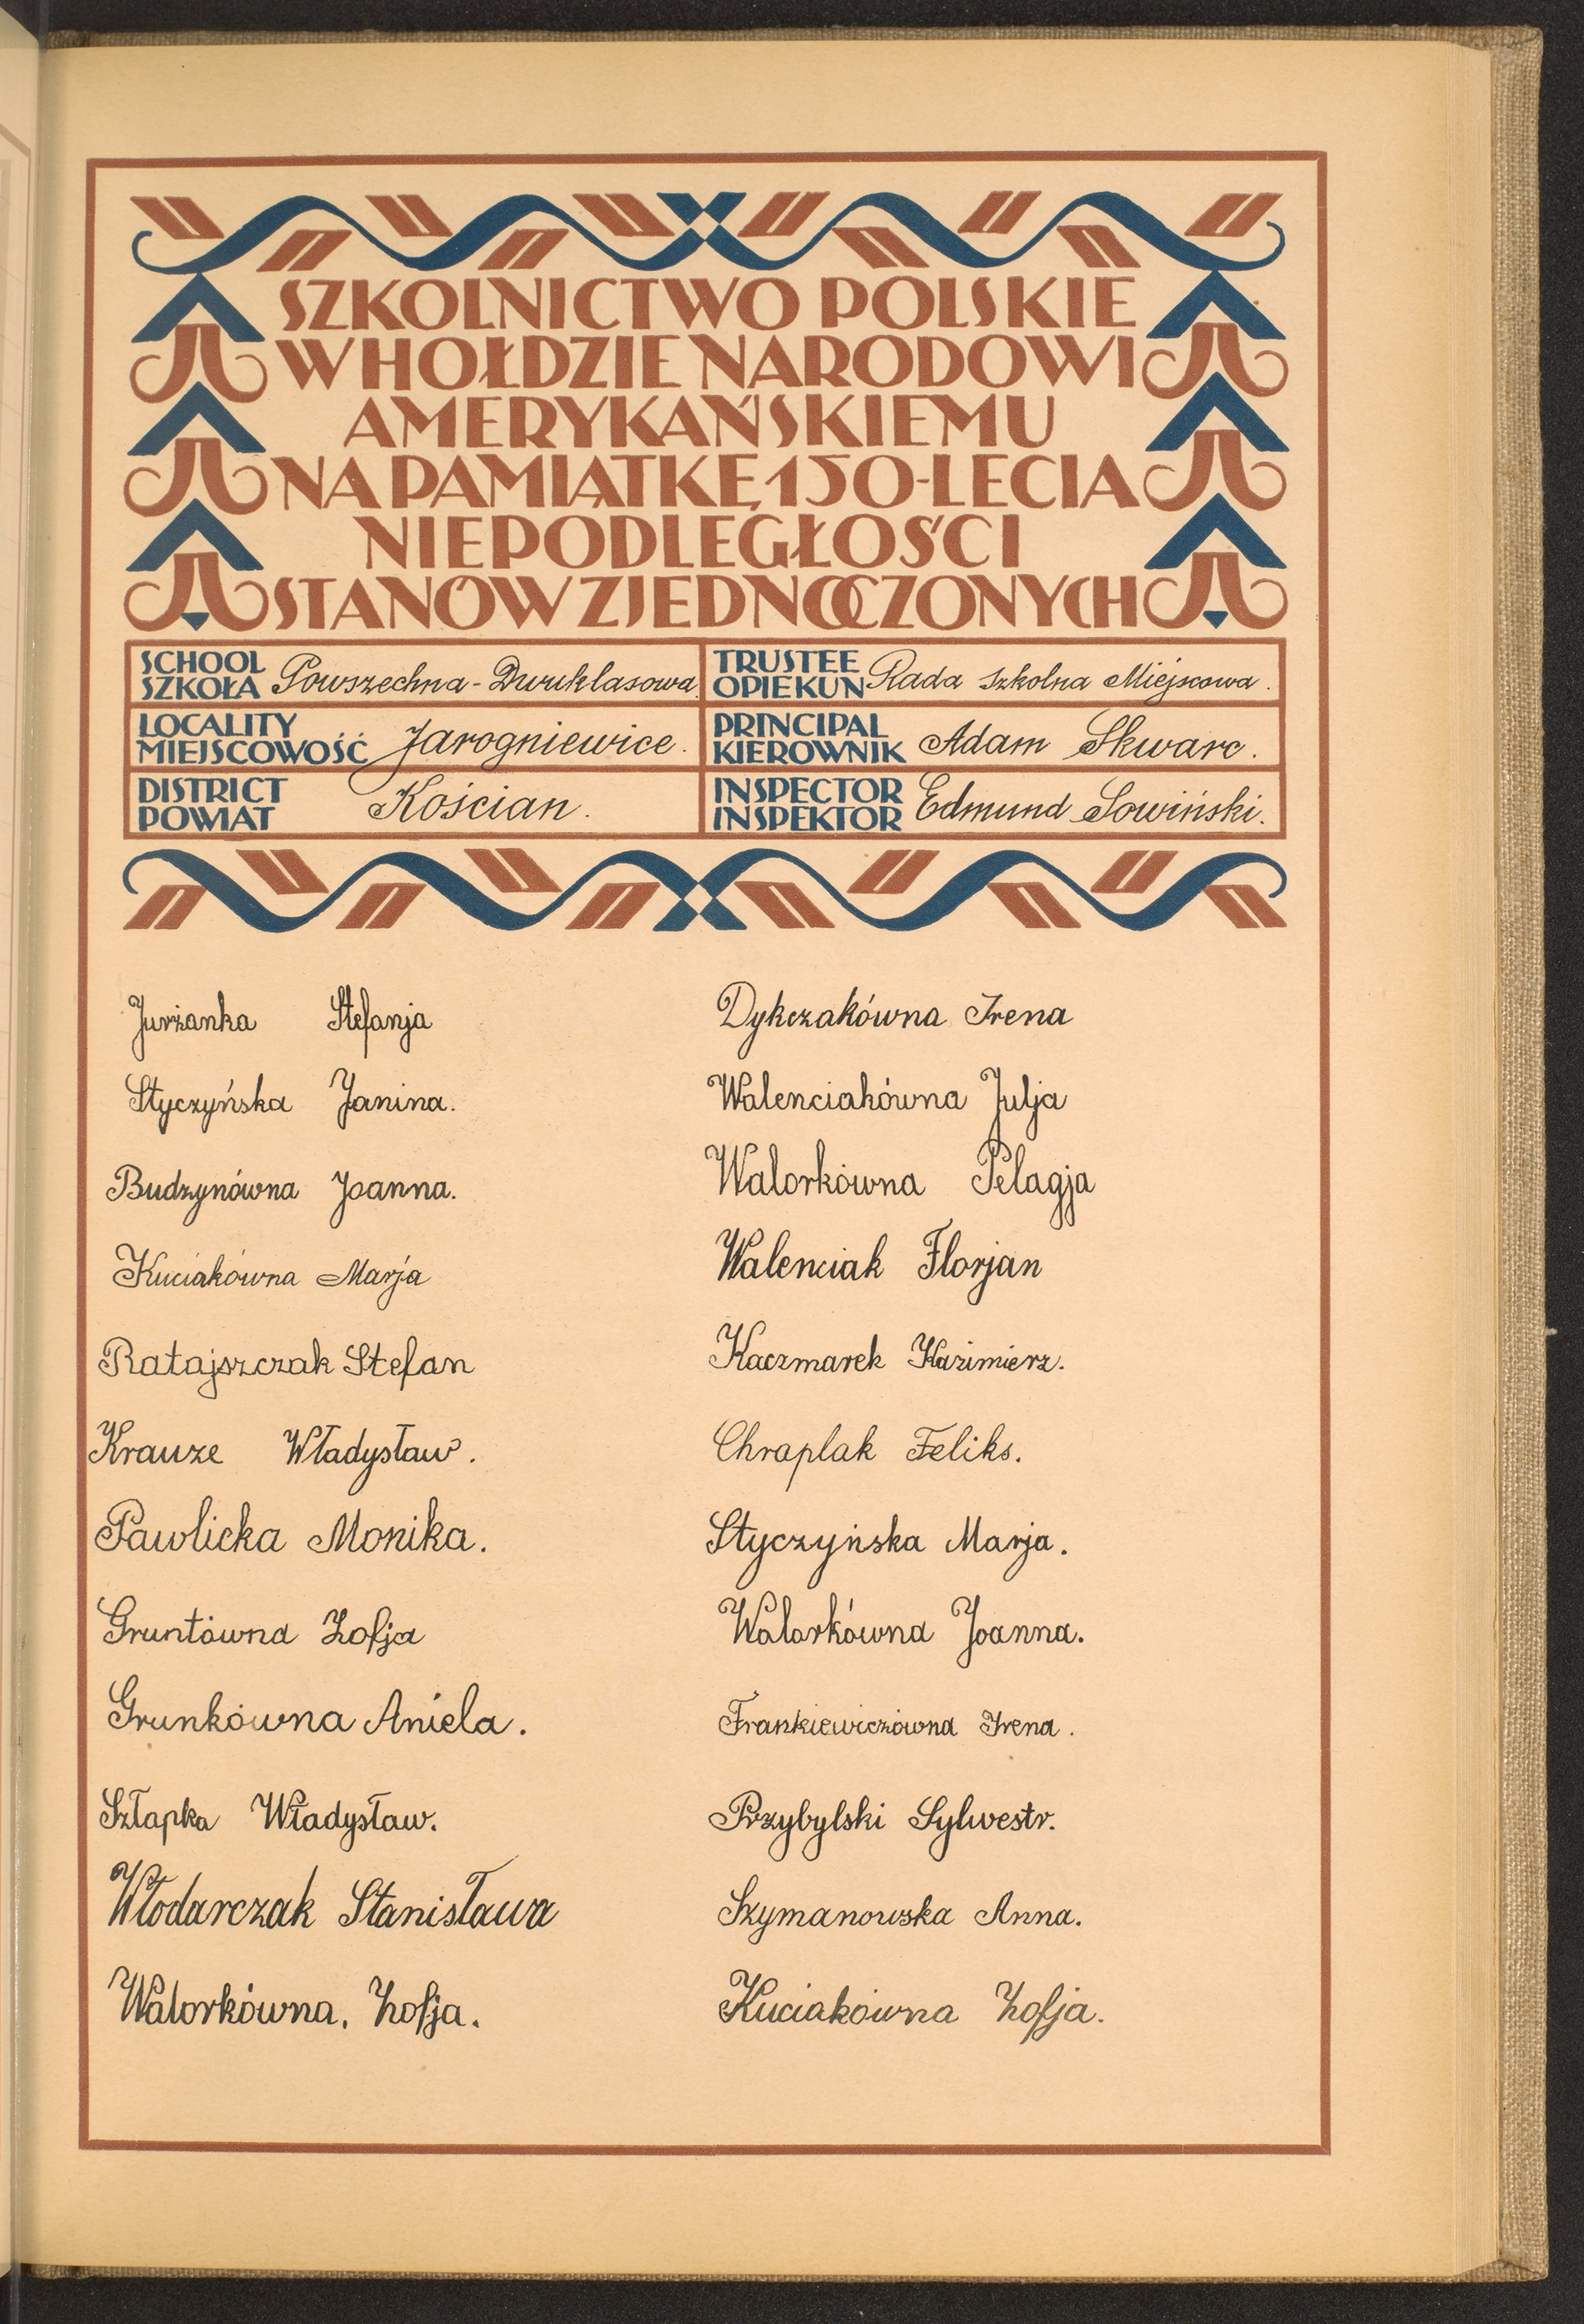 SZKOLNICTWO POLSKIE
W HOŁDZIE NARODOWI
AMERYKAŃSKIEMU
NA PAMIĄTKĘ 150-LECIA
NIEPODLEGŁOŚCI
STANÓW ZJEDNOCZONYCH
SCHOOL
SZKOŁA Powszechna - Dwuklasowa
TRUSTEE
OPIEKUN Rada Szkolna Miejscowa.
LOCALITY
MIEJSCOWOŚĆ Jarogniewice.
PRINCIPAL
KIEROWNIK Adam Skwarc.
DISTRICT
POWIAT Kościan.
INSPECTOR
INSPEKTOR Edmund Sowiński.
Jurżanka Stefanja
Styczyńska Janina.
Budzynówna Joanna.
Kuciakówna Marja
Ratajszczak Stefan
Krauze Władysław.
Pawlicka Monika.
Gruntówna Zofja
Grunkówna Aniela.
Szłapka Władysław.
Włodarczak Stanisława
Walorkówna, Zofja.
Dykczakówna Irena
Walenciakówna Julja
Walorkówna Pelagja
Walenciak Florjan
Kaczmarek Kazimierz.
Chraplak Feliks.
Styczyńska Marja.
Walorkówna Joanna.
Frankiewiczówna Irena.
Przybylski Sylwestr.
Szymanowska Anna.
Kuciakówna Zofja.